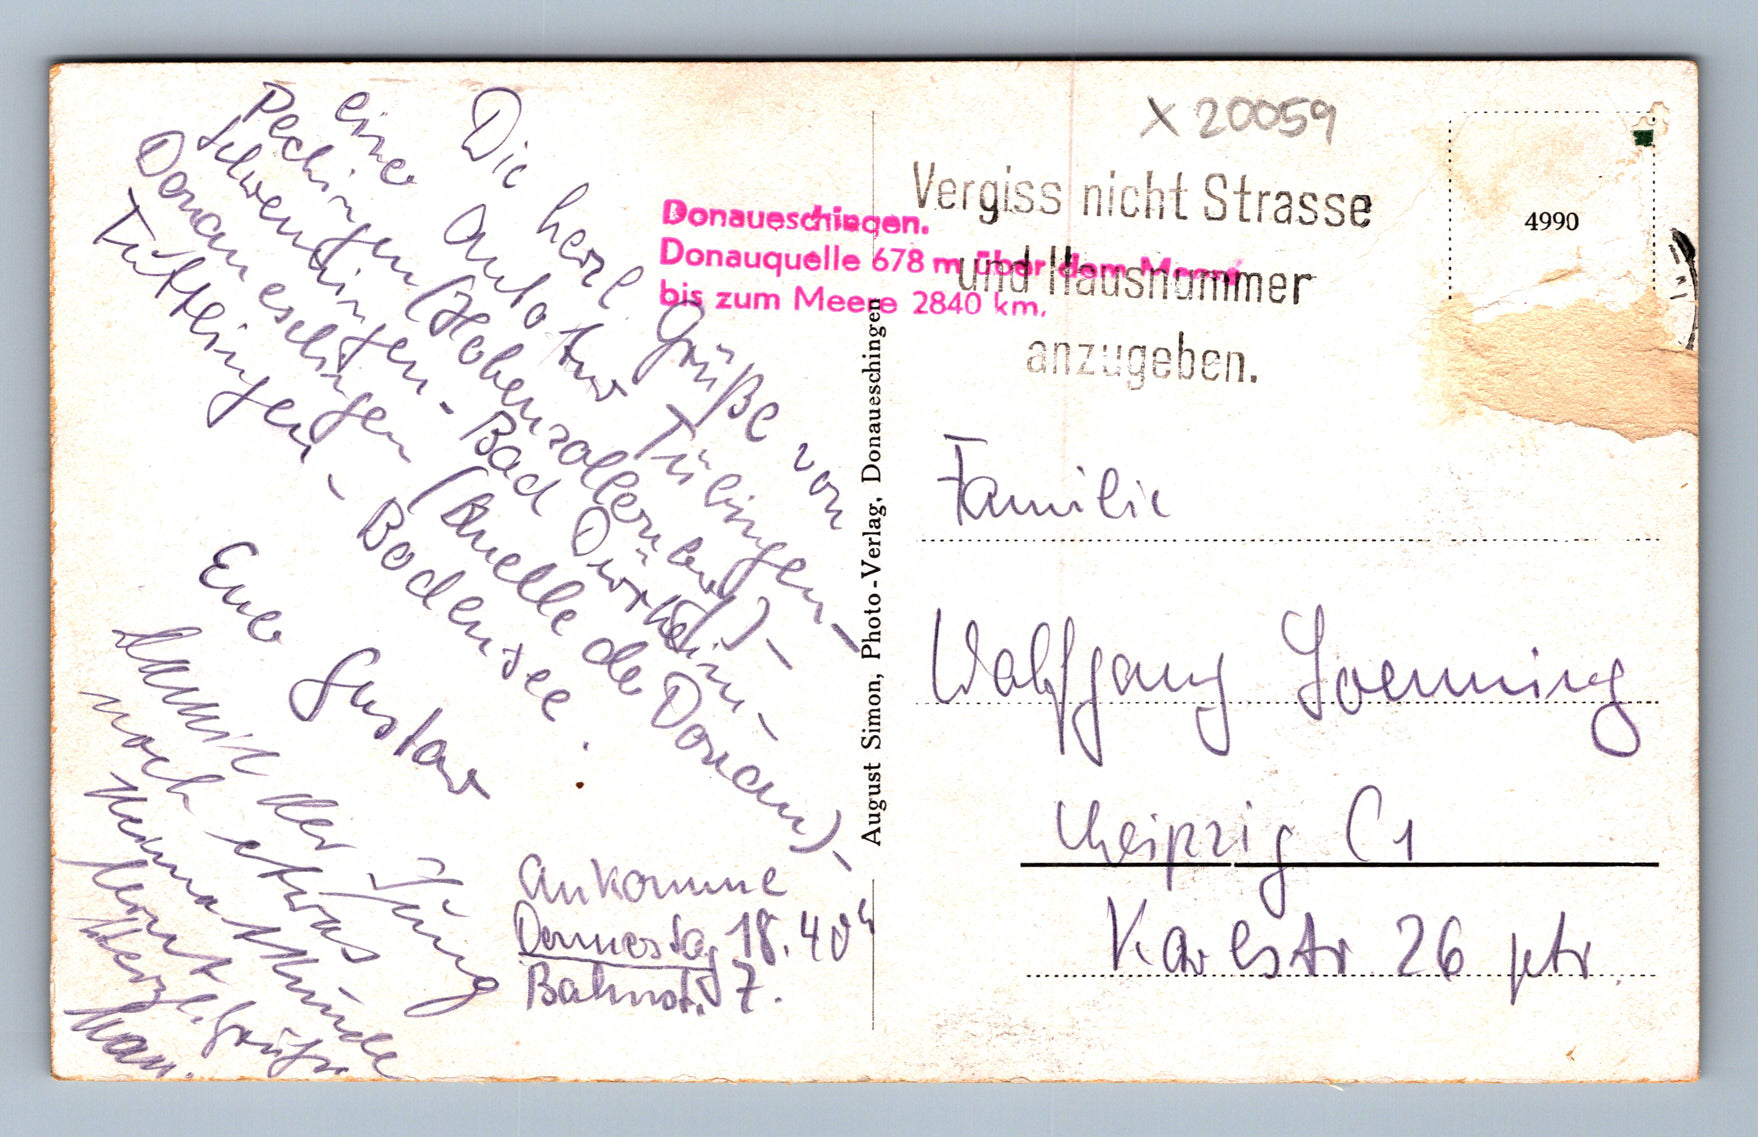 Die herzl. Grüße von
einer Autotour Tübingen –
Hechingen (Hohenzollernburg) –
Schwenningen – Bad Dürrheim –
Donaueschingen (Quelle der Donau) –
Tuttlingen – Bodensee.
Euer Gustav
Damit der Jung
noch etwas
Heimatkunde
lernt
Herzl. Grüße
Ankomme
Donnerstag 18.40 h
Bahnst. 7.
Donaueschingen.
Donauquelle 678 m über dem Meere
bis zum Meere 2840 km.
August Simon, Photo-Verlag, Donaueschingen
X 20059
Vergiss nicht Strasse
und Hausnummer
anzugeben.
4990
Familie
Wolfgang Loenning
Leipzig C1
Karlstr 26 ptr.